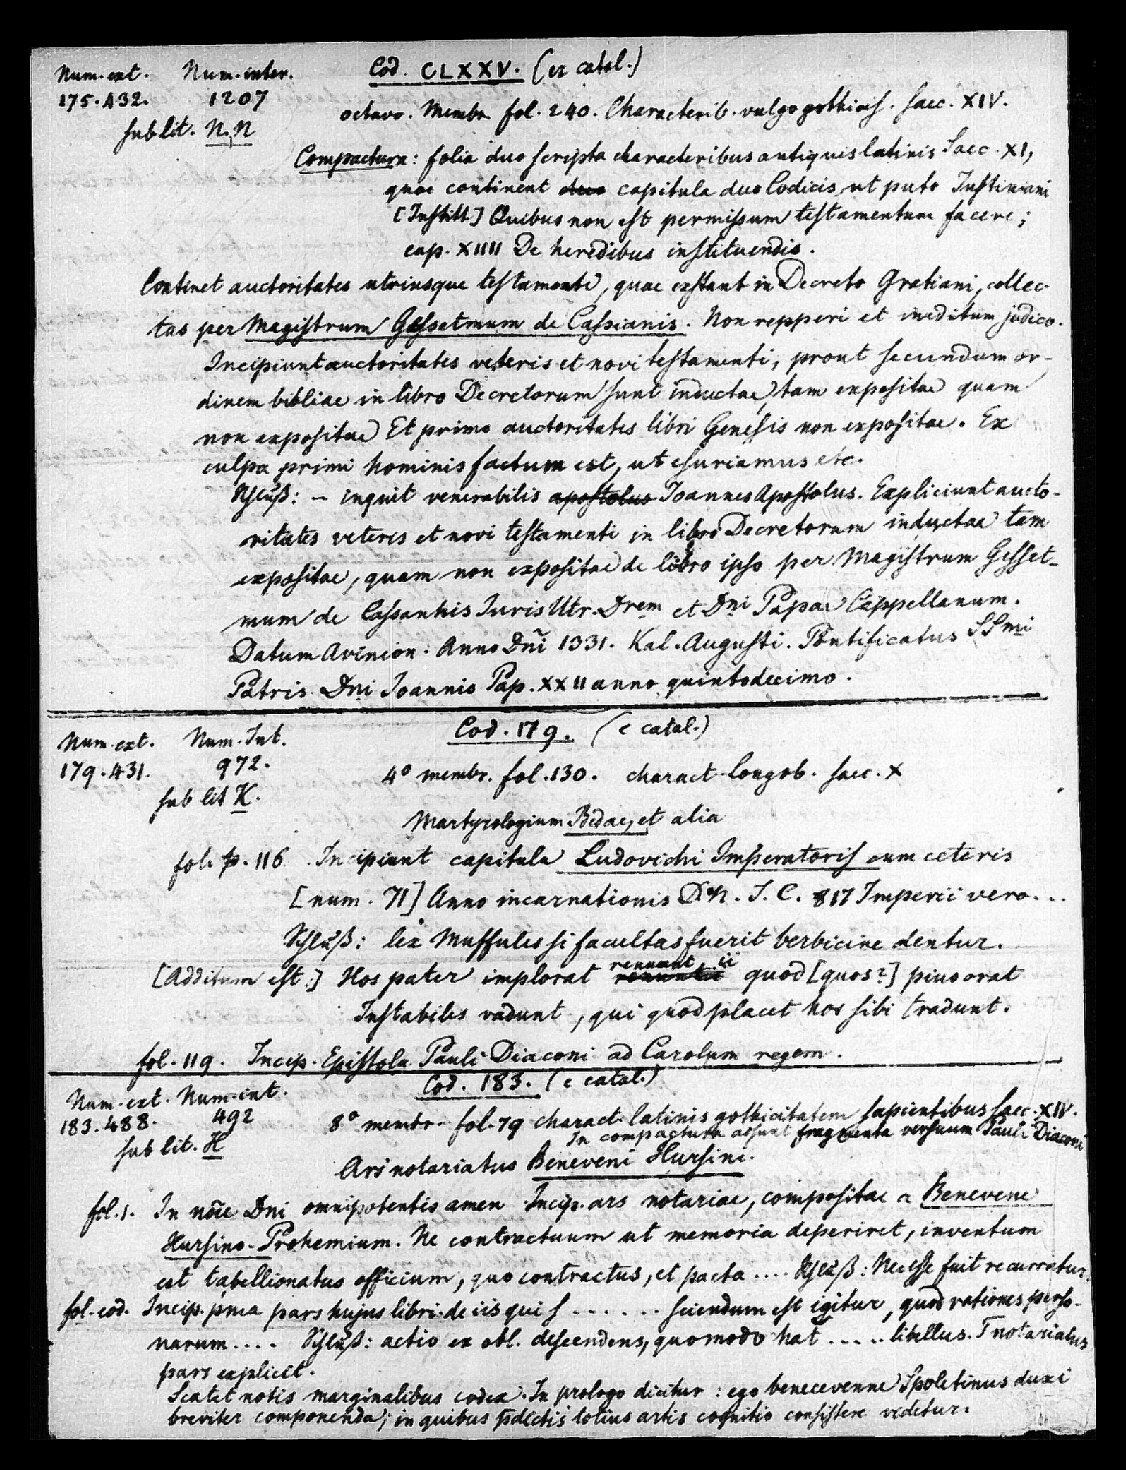 Num. ext. Num. inter. Cod. CLXXV. (ex catal.)
175. 432. 1207
octavo. Membr. fol. 240. Characterib. vulgo gothicis. saec. XIV.
sub lit. N.N
Compactura: folia duo scripta characteribus antiquis latinis Saec. XI,
quae continent duo capitula duo Codicis, ut puto Justiniani
[Instilt.] Quibus non est permissum testamentum facere;
cap. XIIII De heredibus instituendis.
Continet auctoritates utriusque testamenti, quae exstant in Decreto Gratiani, collec-
tas per Magistrum Gessetmum de Cassianis. Non repperi et ineditum judico.
Incipiunt auctoritates veteris et novi testamenti, prout secundum or-
dinem bibliae in libro Decretorum sunt inductae, tam expositae quam
non expositae. Et primo auctoritates libri Genesis non expositae. Ex
culpa primi hominis factum est, ut esuriamus etc.
Schluß: – inquit venerabilis apostolus Joannes Apostolus. Expliciunt aucto-
ritates veteris et novi testamenti in libro Decretorum inductae tam
expositae, quam non expositae de libro ipso per Magistrum Gesset-
mum de Cassanhis Juris Utr. Drem et Dni Papae Cappellanum.
Datum Avinion. Anno Dni 1331. Kal. Augusti. Pontificatus SSmi
Patris Dni Joannis Pap. XXII anno quintodecimo.
Num. ext. Num. Int. Cod. 179. (e catal.)
179. 431. 972.
4º membr. fol. 130. charact. longob. saec. X
sub lit K.
Martyrologium Bedae, et alia
fol. p. 116 Incipiunt capitula Ludovichi Imperatoris cum ceteris
[num. 71] Anno incarnationis Dn. J. C. 817 Imperii vero...
Schluß: lex Muffules si facultas fuerit berbicine dentur.
[Additum est:] Hos pater implorat renuant ii quod [quos?] pius orat
Instabiles vadunt, qui quod placet hos sibi tradunt.
fol. 119. Incip. Epistola Pauli Diaconi ad Carolum regem.
Num. ext. Num. int. Cod. 183. (e catal.)
183. 488. 492
8º membr. fol. 79 charact. latinis gothicitatem sapientibus saec. XIV.
In compactura adsunt fragmenta versuum Pauli Diaconi
sub lit. H
Ars notariatus Beneveni Hursini.
fol. 1. In nōie Dni omnipotentis amen Incip. ars notariae, compositae a Benevene
Hursino. Prohemium. Ne contractuum ut memoria deperiret, inventum
est tabellionatus officium, quo contractus, et pacta .... Schluß: Necesse fuit recurratur.
fol. eod. Incip. pma pars hujus libri de iis qui s ...... sciendum est igitur, quod rationes perso-
narum .... Schluß: actio ex obl. descendens, quomodo hat ..... libellus. T notariatus
pars explicit.
Scatet notis marginalibus codex. In prologo dicitur: ego benecevenne Spoletinus duxi
breviter componenda; in quibus pdictis totius artis cognitio consistere videtur.